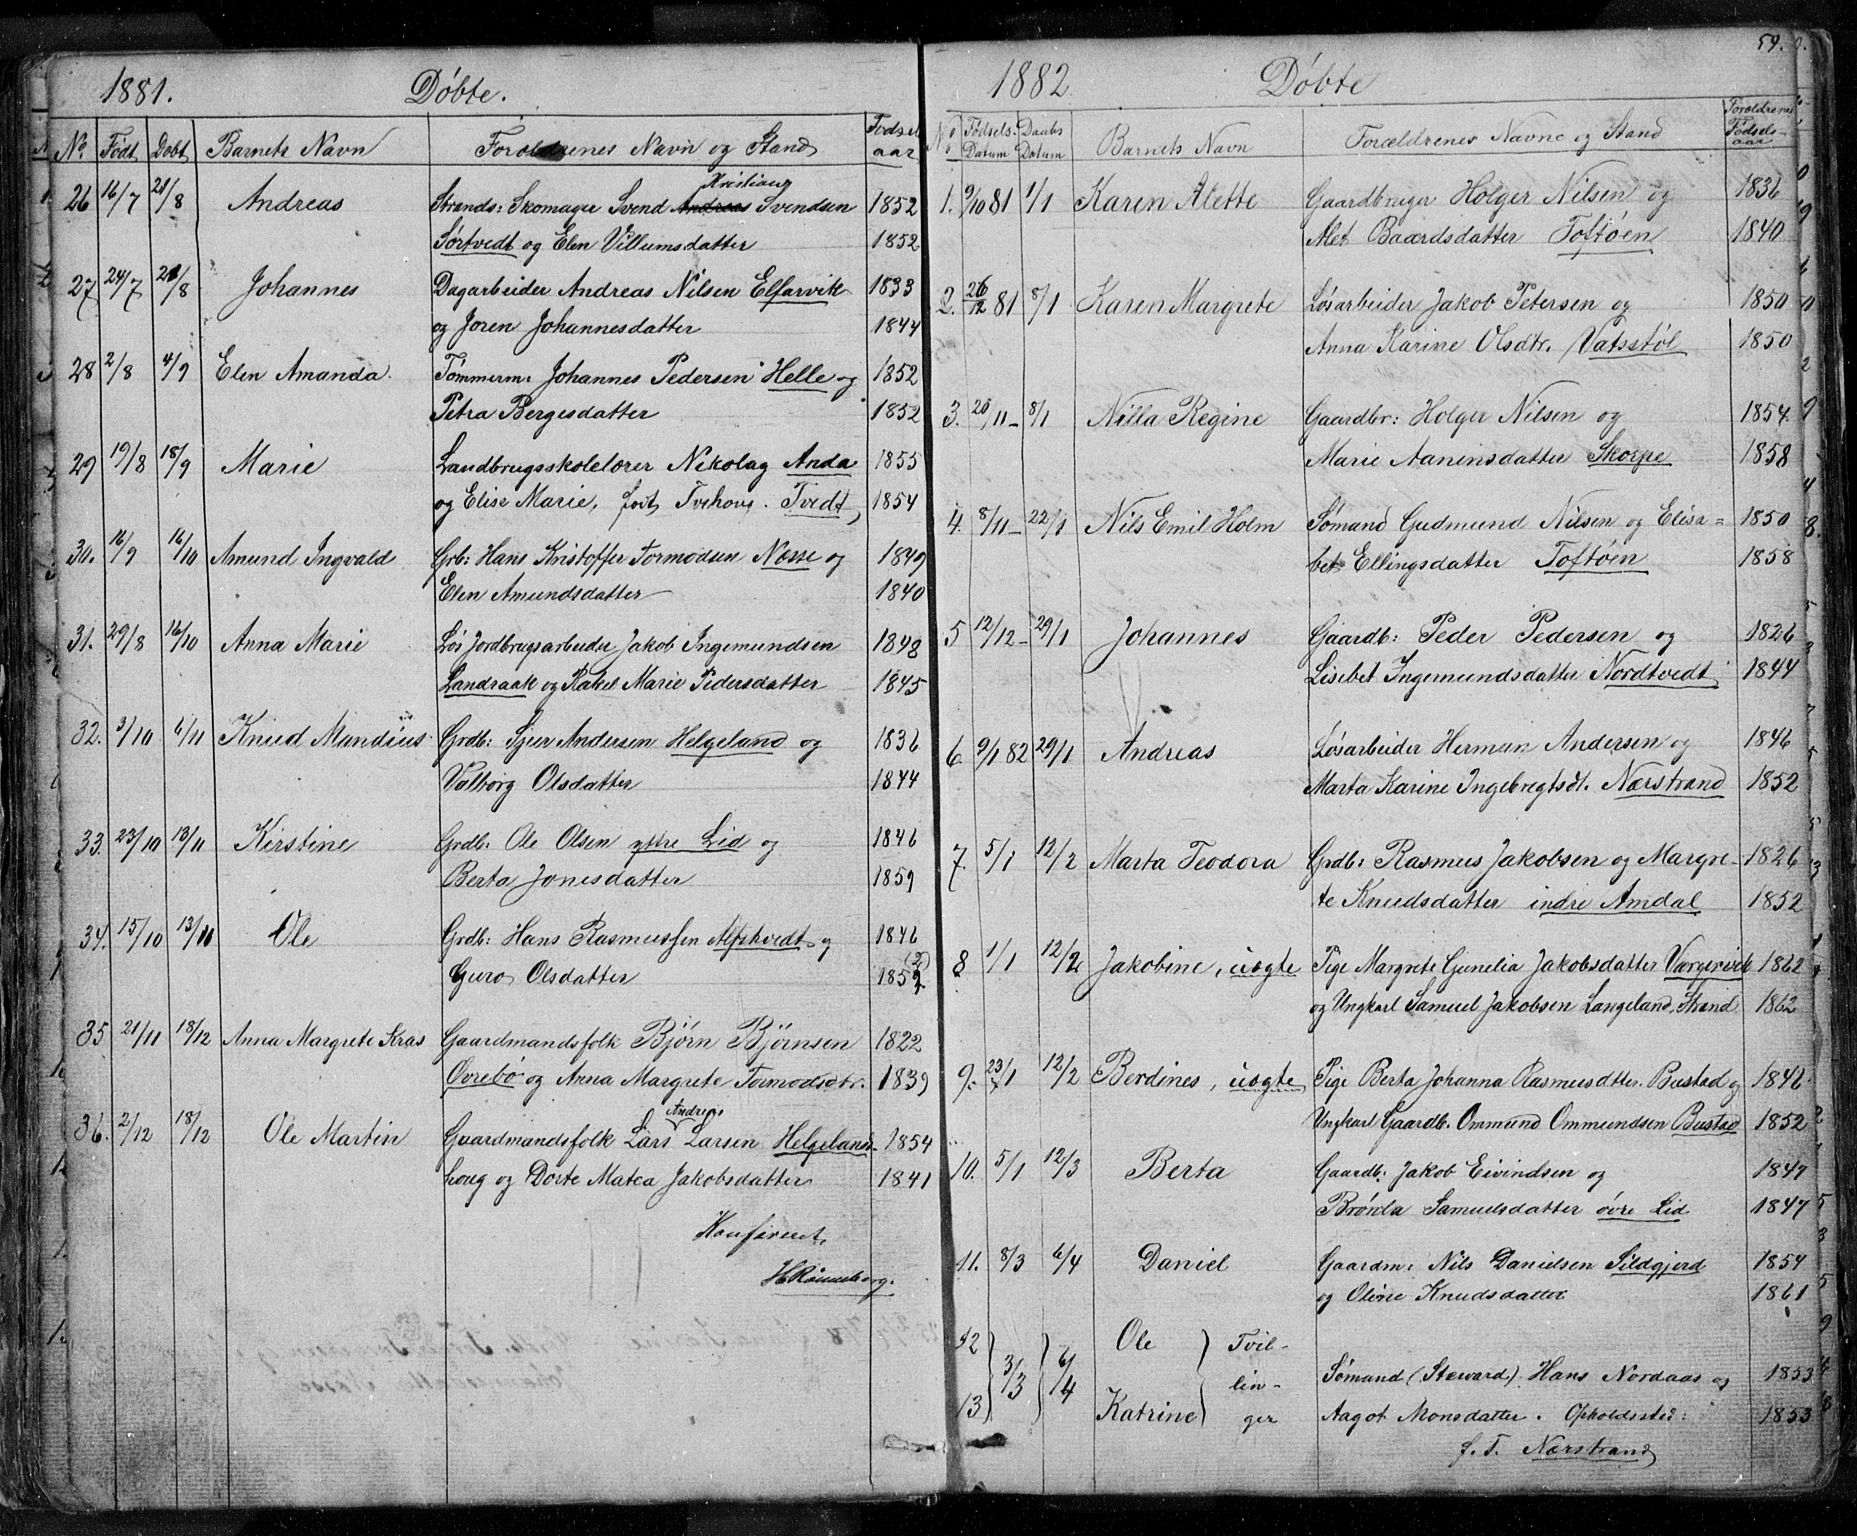 1881. Døbte.
No. Født Døbt Barnets Navn Forældrenes Navn og Stand Fødsels aar
26 16/7 21/8 Andreas Strands: Skomager Svend Kristians Andreas Svendsen 1852
Sørtvedt og Elen Villumsdatter 1852
27 24/7 28/8 Johannes Dagarbeider Andreas Nilsen Elfarvik 1833
og Joren Johannesdatter 1844
28 2/8 4/9 Elen Amanda. Tømmerm: Johannes Pedersen Helle og 1852
Petra Bergesdatter 1852
29 19/8 18/9 Marie Landbrugsskolelærer Nikolay Anda 1855
og Elise Marie, født Tvehovs. Tvedt 1854
30. 16/9 16/10 Amund Ingvald Grb: Hans Kristoffer Tormodsen Næsse og 1849
Elen Amundsdatter 1840
31. 29/8 16/10 Anna Marie Løs Jordbrugsarbeider Jakob Ingemundsen 1848
Landraak og Rakel Marie Pedersdatter 1845
32. 3/10 6/11 Knud Mandius Grdb: Sjur Andersen Helgeland og 1836
Valborg Olsdatter 1844
33. 23/10 13/11 Kirstine Grdb: Ole Olsen yttre Lid og 1846
Berta Jonesdatter 1859
34. 15/10 13/11 Ole Grdb: Hans Rasmussen Alfskvedt og 1846
Guro Olsdatter 1852 (2)
35 21/11 18/12 Anna Margrete Kras Gaardmandsfolk Bjørn Bjørnsen 1822
Øvrebø og Anna Margrete Tormodsdtr. 1839
36. 2/12 18/12 Ole Martin Gaardmandsfolk Lars Andreas Larsen Helgelands- 1854
houg og Dorte Matea Jakobsdatter 1841
Konfereret,
H Rønneberg.
59.
1882 Døbte
No Fødsels-Datum Daabs Datum Barnets Navn Forældrenes Navne og Stand Forældrenes Fødsels-aar
1. 9/10 81 1/1 Karen Alette Gaardbruger Holger Nilsen og 1836
Alet Baardsdatter Toftøen 1840
2. 26/12 81 8/1 Karen Margrete Løsarbeider Jakob Petersen og 1850
Anna Karine Olsdtr. Vatsstøl 1850
3. 20/11 - 8/1 Nilla Regine Gaardbr: Holger Nilsen og 1854
Marie Aaninsdatter Skorpe 1858
4. 8/11 - 22/1 Nils Emil Holm Sømand Gudmund Nilsen og Elisa= 1850
bet Ellingsdatter Toftøen 1858
5 12/12 - 29/1 Johannes Gaardb: Peder Pedersen og 1826
Lisebet Ingemundsdatter Nordtvedt 1844
6 9/1 82 29/1 Andreas Løsarbeider Herman Andersen og 1846
Marta Karine Ingebregtsdt. Nærstrand 1852
7. 5/1 12/2 Marta Teodora Grdb: Rasmus Jakobsen og Margre- 1826
te Knudsdatter indre Amdal 1852
8 1/1 12/2 Jakobine, uægte Pige Margrete Gunelia Jakobsdatter Vargervik 1862
og Ungkarl Samuel Jakobsen Langeland, Strand 1862
9. 23/1 12/2 Berdines, uægte Pige Berta Johanna Rasmusdtter. Bustad og 1846
Ungkarl Gaardb. Ommund Ommundsen Bustad 1852
10. 5/1 12/3 Berta Gaardb: Jakob Eivindsen og 1847
Brønla Samuelsdatter øvre Lid 1847
11. 8/3 6/4 Daniel Gaardm: Nils Danielsen Sildgjerd 1854
og Oline Knudsdatter 1861
12 Ole Tvil-
3/3 6/4 lin- Sømand (Steward) Hans Nordaas og 1853
13 Katrine ger Aagot Monsdatter. Opholdssted: 1853
f. T. Nærstrand